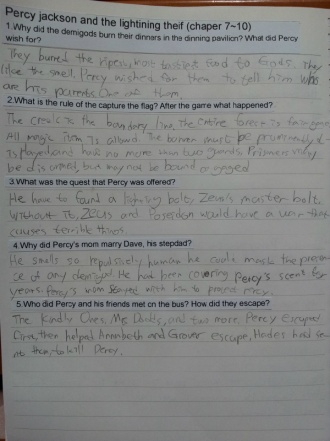 Percy jackson and the lightining theif (chaper 7~10)
1.Why did the demigods burn their dinners in the dinning pavilion? What did Percy
wish for?
They burned the ripest, most tastiest food to Gods. They
like the smell. Percy wished for them to tell him who
are his parents. One of them.
2.What is the rule of the capture the flag? After the game what happened?
The creek is the boundary line, the entire forest is
All magic item is allowed. The banner must be prominently
displayed, and has no more than two guards. Prisoners may
be disarmed, but may not be bound or gagged
3.What was the quest that Percy was offered?
He have to found a lighting bolt, Zeus's master bolt.
Without it, Zeus and Poseidon would have a war that
causes terrible things.
4.Why did Percy's mom marry Dave, his stepdad?
He smells so repulsively human he could mask the presen
ce of any demigod. He had been covering Percy's scent for
years. Percy's mom stayed with him to protect Percy.
5.Who did Percy and his friends met on the bus? How did they escape?
The Kindly Ones, Mrs Dodds, and two more. Percy escaped
first, then helped Annabeth and Grover escape. Hades had se
nt them to kill Percy.